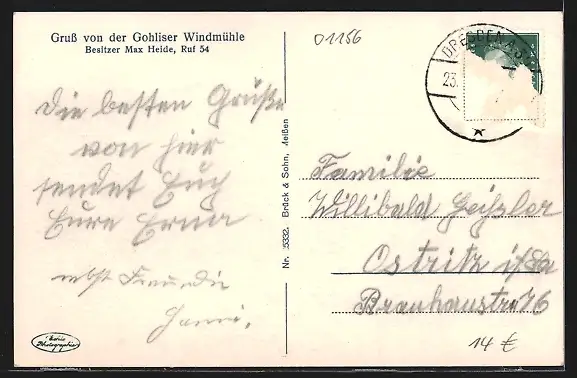 Gruß von der Gohliser Windmühle
Besitzer Max Heide, Ruf 54
01156
DRESDEN A
23.
Die besten Grüße
von hier
sendet Euch
Eure Erna
nebst Freundin
Hanni.
Nr. 15332. Brück & Sohn, Meißen
Familie
Willibald Geißler
Ostritz i/Sa
Brauhausstr. 76
Echte
Photographie
14 €